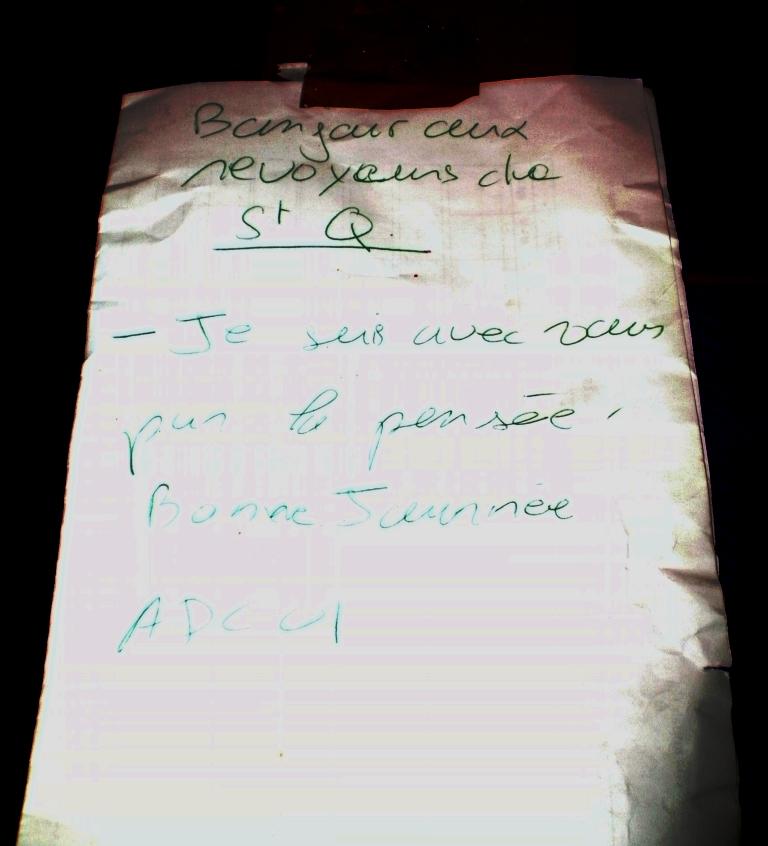 Bonjour aux
revoyeurs de
St Q
- Je suis avec vous
par la pensée.
Bonne Journée